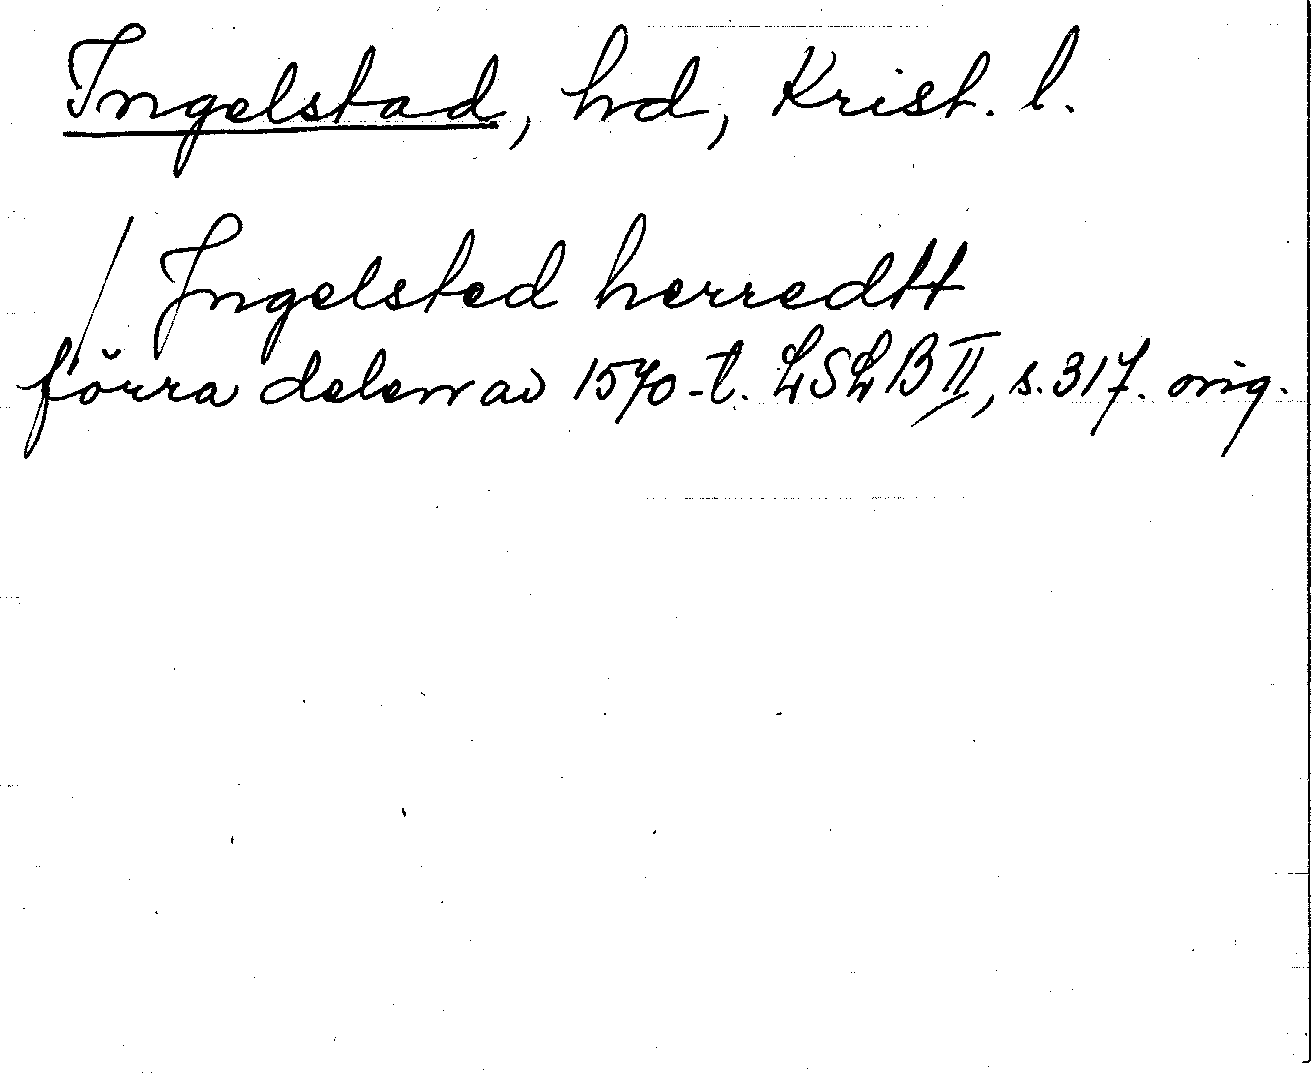 Ingelstad, hd, Krist. l.
/ Jngelsted herredtt
förra delen av 1570-t. LSLB II, s. 317. orig.